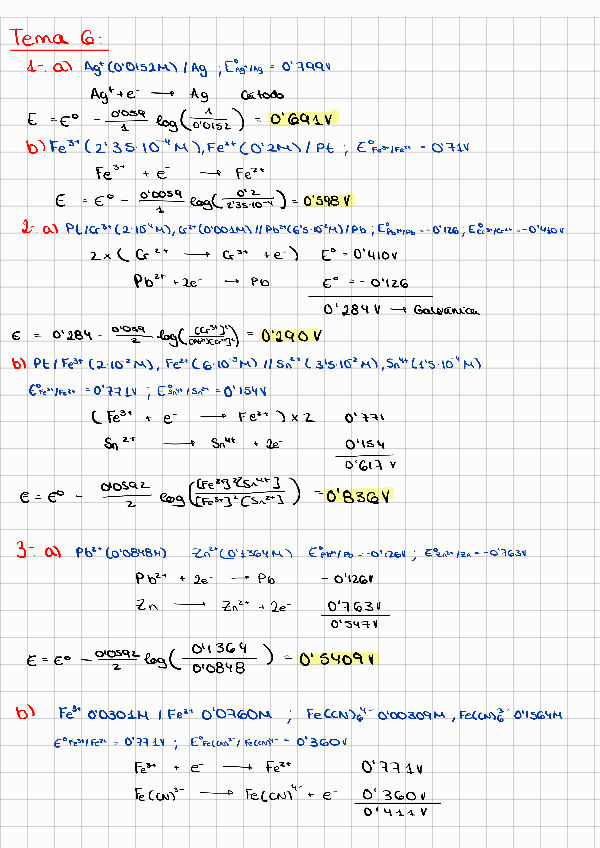 Tema 6:
1-. a) Ag⁺(0'0152M) / Ag ; E°Ag⁺/Ag = 0'799V
Ag⁺ + e⁻ → Ag Cátodo
E = E° - 0'059/1 log(1/0'0152) = 0'691V
b) Fe³⁺(2'35·10⁻⁴M), Fe²⁺(0'2M) / Pt ; E°Fe³⁺/Fe²⁺ = 0'71V
Fe³⁺ + e⁻ → Fe²⁺
E = E° - 0'0059/1 log(0'2/2'35·10⁻⁴) = 0'598V
2-. a) Pt/Cr³⁺(2·10⁻⁴M), Cr²⁺(0'001M) // Pb²⁺(6'5·10⁻²M)/Pb ; E°Pb²⁺/Pb = -0'126 ; E°Cr³⁺/Cr²⁺ = -0'410V
2 x ( Cr²⁺ → Cr³⁺ + e⁻ ) E° = 0'410V
Pb²⁺ + 2e⁻ → Pb E° = -0'126
0'284V → Galvánica
E = 0'284 - 0'059/2 log([Cr³⁺]²/[Pb²⁺][Cr²⁺]²) = 0'290V
b) Pt / Fe³⁺(2·10⁻²M), Fe²⁺(6·10⁻⁵M) // Sn²⁺(3'5·10⁻²M), Sn⁴⁺(1'5·10⁻⁴M)
E°Fe³⁺/Fe²⁺ = 0'771V ; E°Sn⁴⁺/Sn²⁺ = 0'154V
( Fe³⁺ + e⁻ → Fe²⁺ ) x 2 0'771
Sn²⁺ → Sn⁴⁺ + 2e⁻ 0'154
0'617V
E = E° - 0'0592/2 log([Fe²⁺]²[Sn⁴⁺]/[Fe³⁺]²[Sn²⁺]) = 0'836V
3-. a) Pb²⁺(0'0848M) Zn²⁺(0'1364M) E°Pb²⁺/Pb = -0'126V ; E°Zn²⁺/Zn = -0'763V
Pb²⁺ + 2e⁻ → Pb -0'126V
Zn → Zn²⁺ + 2e⁻ 0'763V
0'547V
E = E° - 0'0592/2 log(0'1364/0'0848) = 0'5409V
b) Fe³⁺ 0'0301M / Fe²⁺ 0'0760M ; Fe(CN)₆⁴⁻ 0'00309M , Fe(CN)₆³⁻ 0'1564M
E°Fe³⁺/Fe²⁺ = 0'771V ; E°Fe(CN)³⁻/Fe(CN)⁴⁻ = 0'360V
Fe³⁺ + e⁻ → Fe²⁺ 0'771V
Fe(CN)³⁻ → Fe(CN)⁴⁻ + e⁻ 0'360V
0'411V